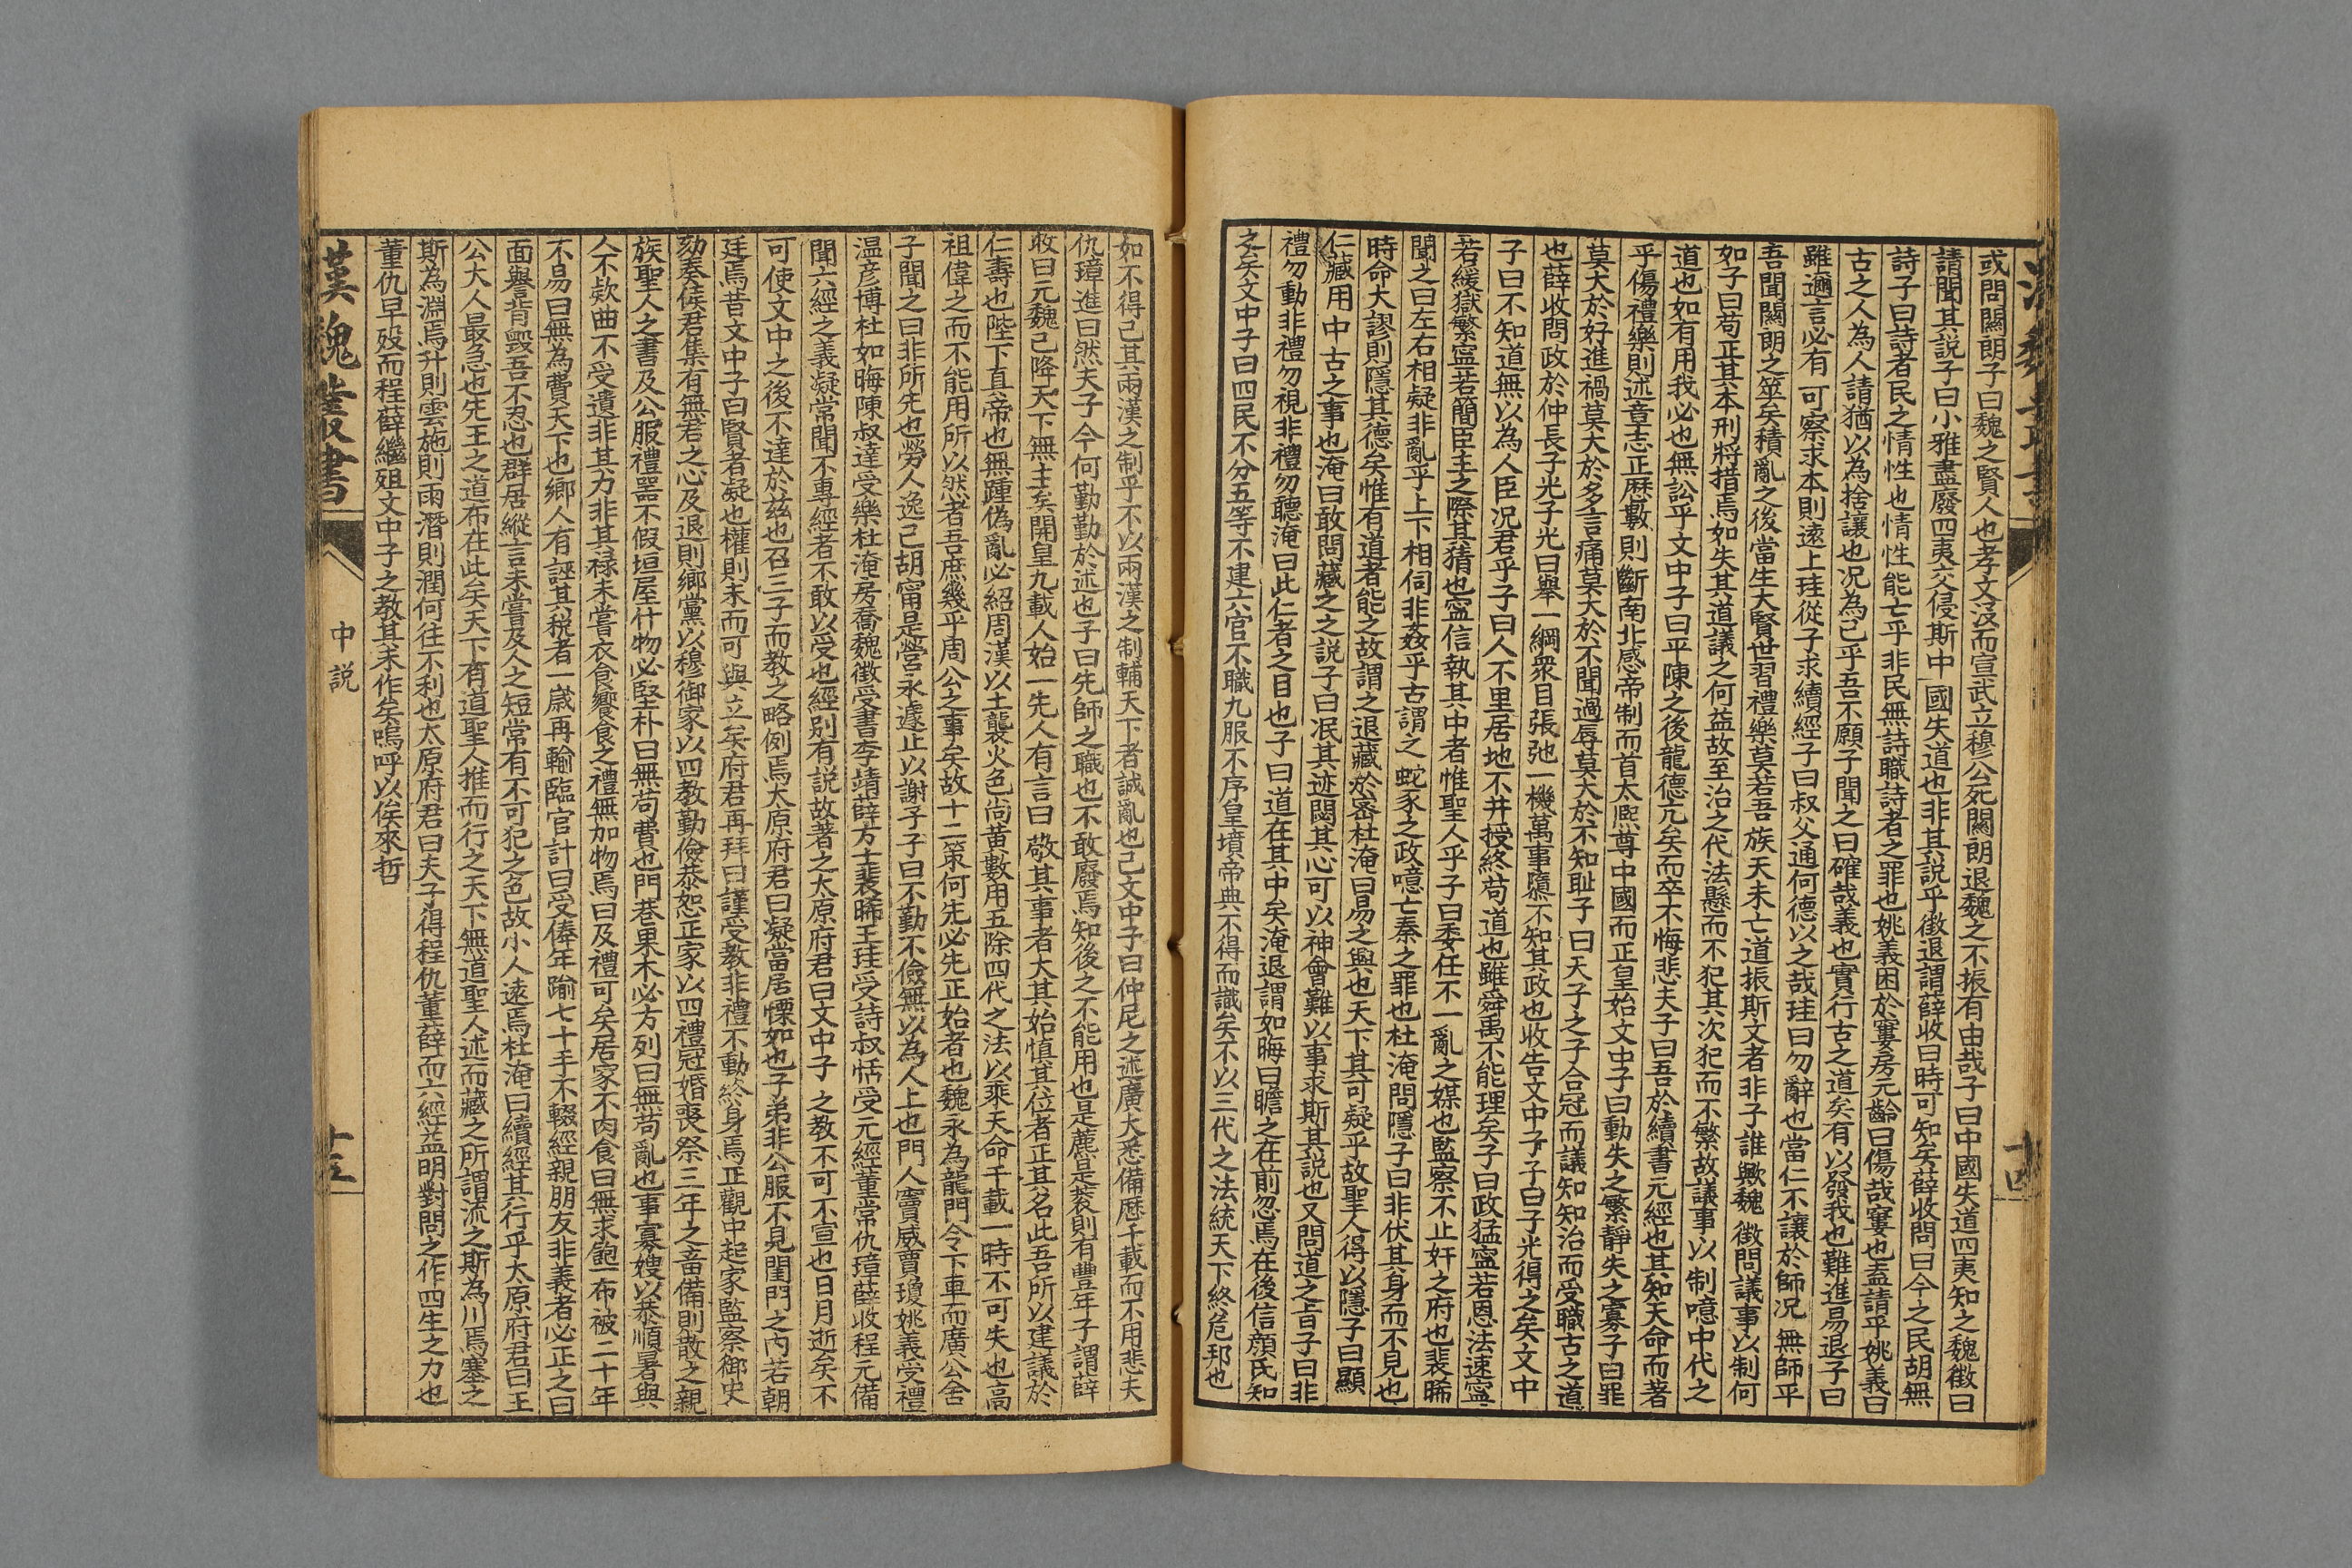 或問關朗子曰魏之賢人也孝文沒而宣武立穆公死關朗退魏之不振有由哉子曰中國失道四夷知之魏徵曰
請聞其說子曰小雅盡廢四夷交侵斯中國失道也非其說乎徵退謂薛收曰時可知矣薛收問曰今之民胡無
詩子曰詩者民之情性也情性能亡乎非民無詩職詩者之罪也姚義困於窶房元齡曰傷哉窶也盍請乎姚義曰
古之人為人請猶以為捨讓也況為己乎吾不願子聞之曰確哉義也實行古之道矣有以發我也難進易退子曰
雖邇言必有可察求本則遠上珪從子求續經子曰叔父通何德以之哉珪曰勿辭也當仁不讓於師況無師乎
吾聞關朗之筮矣積亂之後當生大賢世習禮樂莫若吾族天未亡道振斯文者非子誰歟魏徵問議事以制何
如子曰苟正其本刑將措焉如失其道議之何益故至治之代法懸而不犯其次犯而不繁故議事以制噫中代之
道也如有用我必也無訟乎文中子曰平陳之後龍德亢矣而卒不悔悲夫子曰吾於續書元經也其知天命而著
乎傷禮樂則述章志正歷數則斷南北感帝制而首太熙尊中國而正皇始文中子曰動失之繁靜失之寡子曰罪
莫大於好進禍莫大於多言痛莫大於不聞過辱莫大於不知耻子曰天子之子合冠而議知知治而受職古之道
也薛收問政於仲長子光子光曰舉一綱衆目張弛一機萬事隳不知其政也收告文中子子曰子光得之矣文中
子曰不知道無以為人臣況君乎子曰人不里居地不井授終苟道也雖舜禹不能理矣子曰政猛寍若恩法速寍
若緩獄繁寍若簡臣主之際其猜也寍信執其中者惟聖人乎子曰委任不一亂之媒也監察不止奸之府也裴晞
聞之曰左右相疑非亂乎上下相伺非姦乎古謂之蛇豕之政噫亡秦之罪也杜淹問隱子曰非伏其身而不見也
時命大謬則隱其德矣惟有道者能之故謂之退藏於密杜淹曰易之興也天下其可疑乎故聖人得以隱子曰顯
仁藏用中古之事也淹曰敢問藏之之說子曰泯其迹閟其心可以神會難以事求斯其說也又問道之旨子曰非
禮勿動非禮勿視非禮勿聽淹曰此仁者之目也子曰道在其中矣淹退謂如晦曰瞻之在前忽焉在後信顏氏知
之矣文中子曰四民不分五等不建六官不職九服不序皇墳帝典不得而識矣不以三代之法統天下終危邦也
十四
如不得已其兩漢之制乎不以兩漢之制輔天下者誠亂也已文中子曰仲尼之述廣大悉備歷千載而不用悲夫
仇璋進曰然夫子今何勤勤於述也子曰先師之職也不敢廢焉知後之不能用也是藨是蓘則有豐年子謂薛
收曰元魏已降天下無主矣開皇九載人始一先人有言曰敬其事者大其始慎其位者正其名此吾所以建議於
仁壽也陛下真帝也無踵偽亂必紹周漢以土襲火色尚黃數用五除四代之法以乘天命千載一時不可失也高
祖偉之而不能用所以然者吾庶幾乎周公之事矣故十二策何先必先正始者也魏永為龍門令下車而廣公舍
子聞之曰非所先也勞人逸己胡甯是營永遽止以謝子子曰不勤不儉無以為人上也門人竇威賈瓊姚義受禮
温彥博杜如晦陳叔達受樂杜淹房喬魏徵受書李靖薛方士裴晞王珪受詩叔恬受元經董常仇璋薛收程元備
聞六經之義凝常聞不專經者不敢以受也經別有說故著之太原府君曰文中子之教不可不宣也日月逝矣不
可使文中之後不達於茲也召三子而教之略例焉太原府君曰凝當居慄如也子弟非公服不見閨門之內若朝
廷焉昔文中子曰賢者凝也權則未而可與立矣府君再拜曰謹受教非禮不動終身焉正觀中起家監察御史
劾奏侯君集有無君之心及退則鄉黨以穆御家以四教勤儉恭恕正家以四禮冠婚喪祭三年之畜備則散之親
族聖人之書及公服禮噐不假垣屋什物必堅朴曰無苟費也門巷果木必方列曰無苟亂也事寡嫂以恭順暑與
人不款曲不受遺非其力非其祿未嘗衣食饗食之禮無加物焉曰及禮可矣居家不肉食曰無求飽一布被二十年
不易曰無為費天下也鄉人有誣其稅者一歲再輸臨官計日受俸年踰七十手不輟經親朋友非義者必正之曰
面譽背毀吾不忍也群居縱言未嘗及人之短常有不可犯之色故小人遠焉杜淹曰續經其行乎太原府君曰王
公大人最急也先王之道布在此矣天下有道聖人推而行之天下無道聖人述而藏之所謂流之斯為川焉塞之
斯為淵焉升則雲施則雨潛則潤何往不利也太原府君曰夫子得程仇董薛而六經益明對問之作四生之力也
董仇早歿而程薛繼殂文中子之教其未作矣嗚呼以俟來哲
漢魏叢書
中說
十五